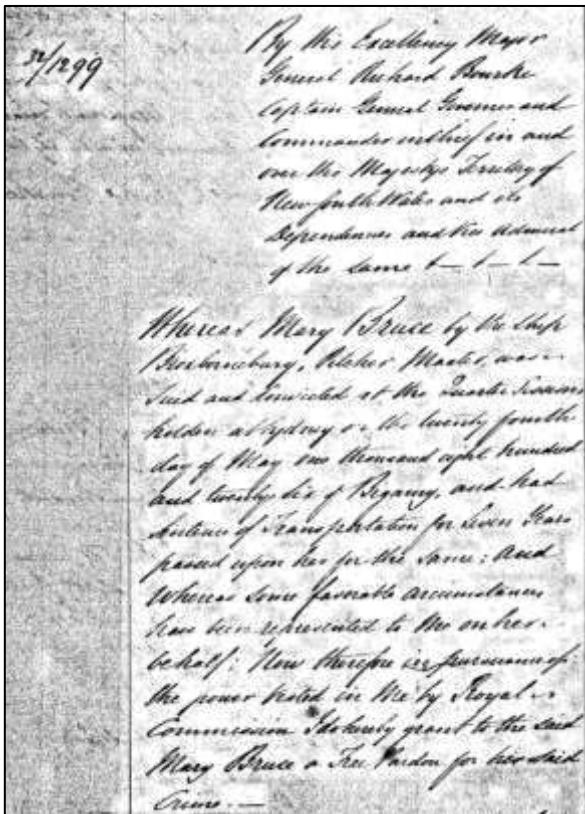 32/1299
By His Excellency Major
General Richard Bourke
Captain General Governor and
Commander in Chief in and
over His Majestys Territory of
New South Wales and its
Dependencies and Vice Admiral
of the same &— &— &—
Whereas Mary Bruce by the Ship
Broxbornebury, Pitcher Master, was
tried and Convicted at the Quarter Sessions
holden at Sydney on the twenty fourth
day of May one thousand eight hundred
and twenty six of Bigamy, and had
Sentence of Transportation for Seven Years
passed upon her for the same: And
Whereas some favorable circumstances
have been represented to Me on her
behalf: Now therefore in pursuance of
the power vested in Me by Royal
Commission I do hereby grant to the said
Mary Bruce a Free Pardon for her said
Crime.—